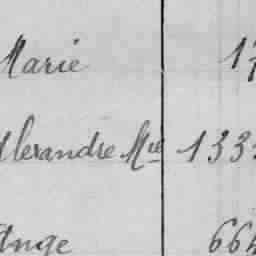 Marie 17
Alexandre Mie 133
Ange 664